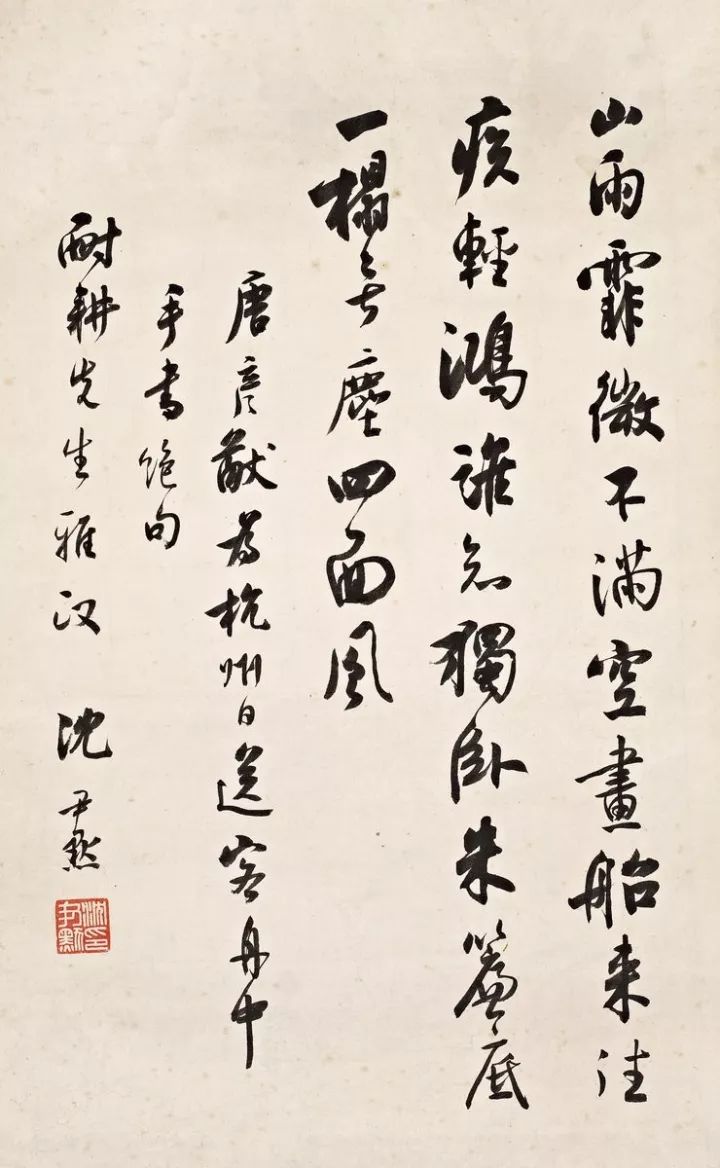 山雨霏微不滿空畫船来往
疾輕鴻誰知獨卧朱簾底
一榻無塵四面風
唐彦猷為杭州日送客舟中
手書絕句
耐耕先生雅政 沈尹默
沈尹默印